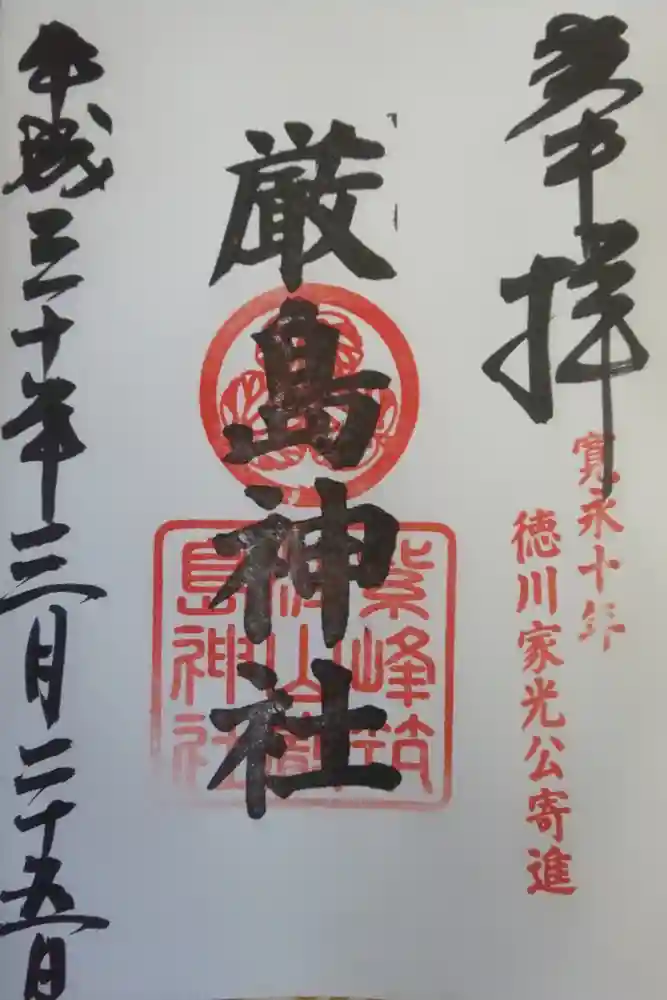 奉拝
寛永十年
徳川家光公寄進
厳島神社
紫峰筑
波山厳
島神社
平成三十年三月二十五日